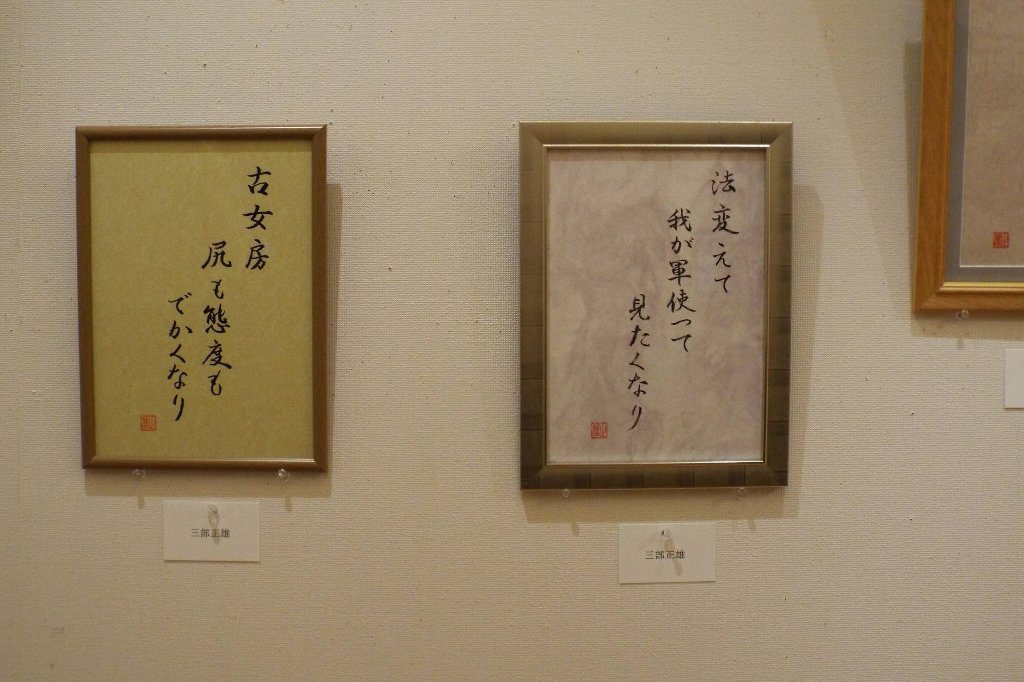 古女房
尻も態度も
でかくなり
三部正雄
法変えて
我が軍使って
見たくなり
三部正雄